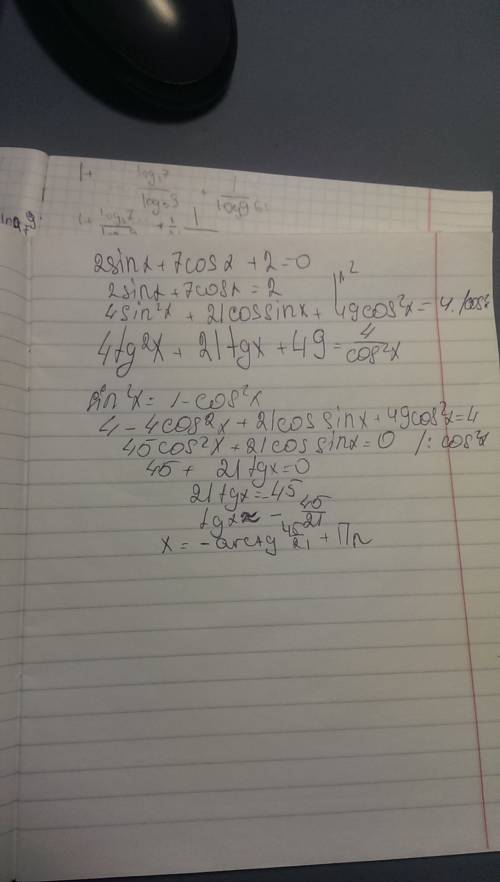 1+ log₃7 / log₃9 + 1 / log9
1+ log₃7 + 1
2sinx+7cosx+2=0
2sinx+7cosx=2 |^2
4sin²x + 21cossinx + 49cos²x = 4 :/cos²x
4tg²x + 21tgx + 49 = 4/cos²x
sin²x = 1-cos²x
4-4cos²x+21cos sinx+49cos²x=4
45cos²x+21cos sinx=0 /: cos²x
45 + 21tgx=0
21tgx=-45
tgx = - 45/21
x = -arctg 45/21 + Пn